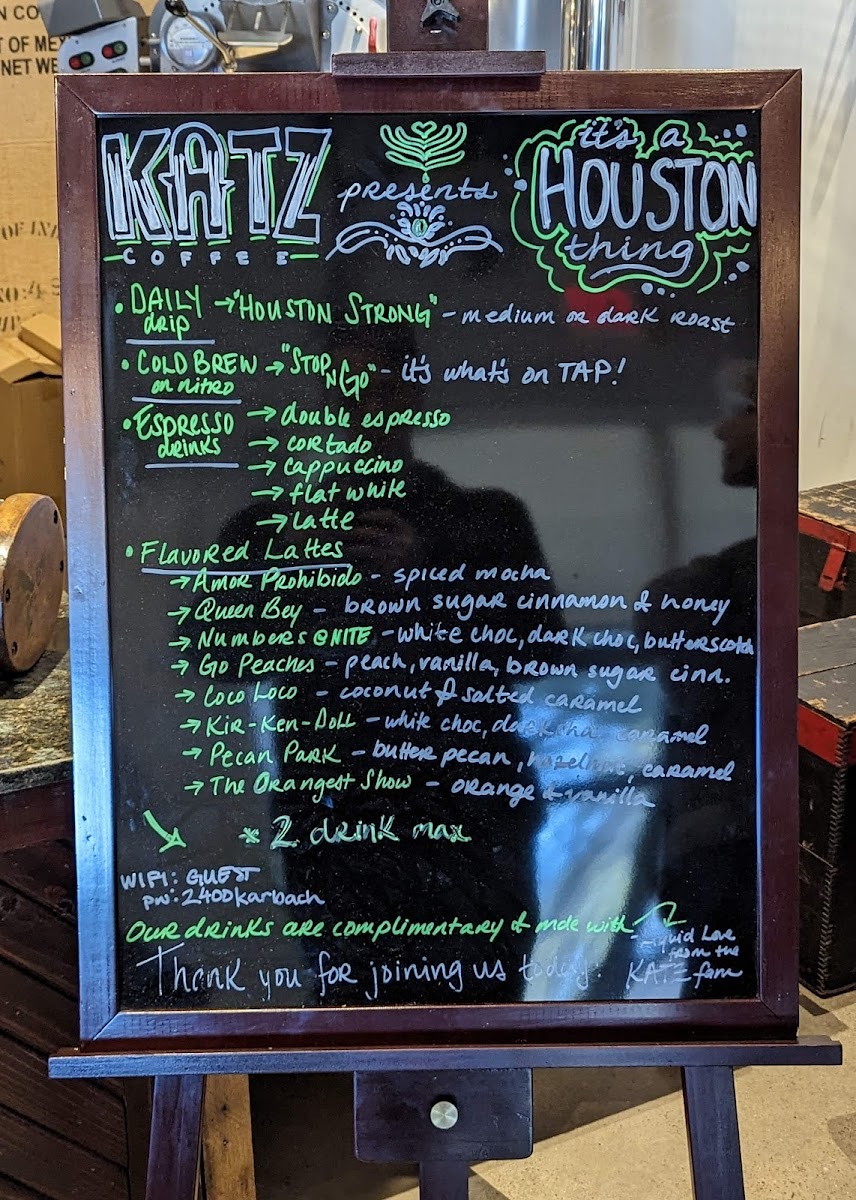 N CO
T OF MEX
NET WE
OF IN
KATZ
COFFEE
presents
it's a
HOUSTON
thing
• DAILY drip → "HOUSTON STRONG" - medium or dark roast
• COLD BREW on nitro → "STOP N GO" - it's what's on TAP!
• ESPRESSO drinks → double espresso
→ cortado
→ cappuccino
→ flat white
→ latte
• Flavored Lattes
→ Amor Prohibido - spiced mocha
→ Queen Bey - brown sugar cinnamon & honey
→ Numbers @ NITE - white choc, dark choc, butterscotch
→ Go Peaches - peach, vanilla, brown sugar cinn.
→ Coco Loco - coconut & salted caramel
→ Kir-Ken-Doll - white choc, dark choc, caramel
→ Pecan Park - butter pecan, hazelnut, caramel
→ The Orangest Show - orange & vanilla
* 2 drink max
WIFI: GUEST
pw: 2400karbach
Our drinks are complimentary & made with
- Liquid Love
from the
KATZ fam
Thank you for joining us today!